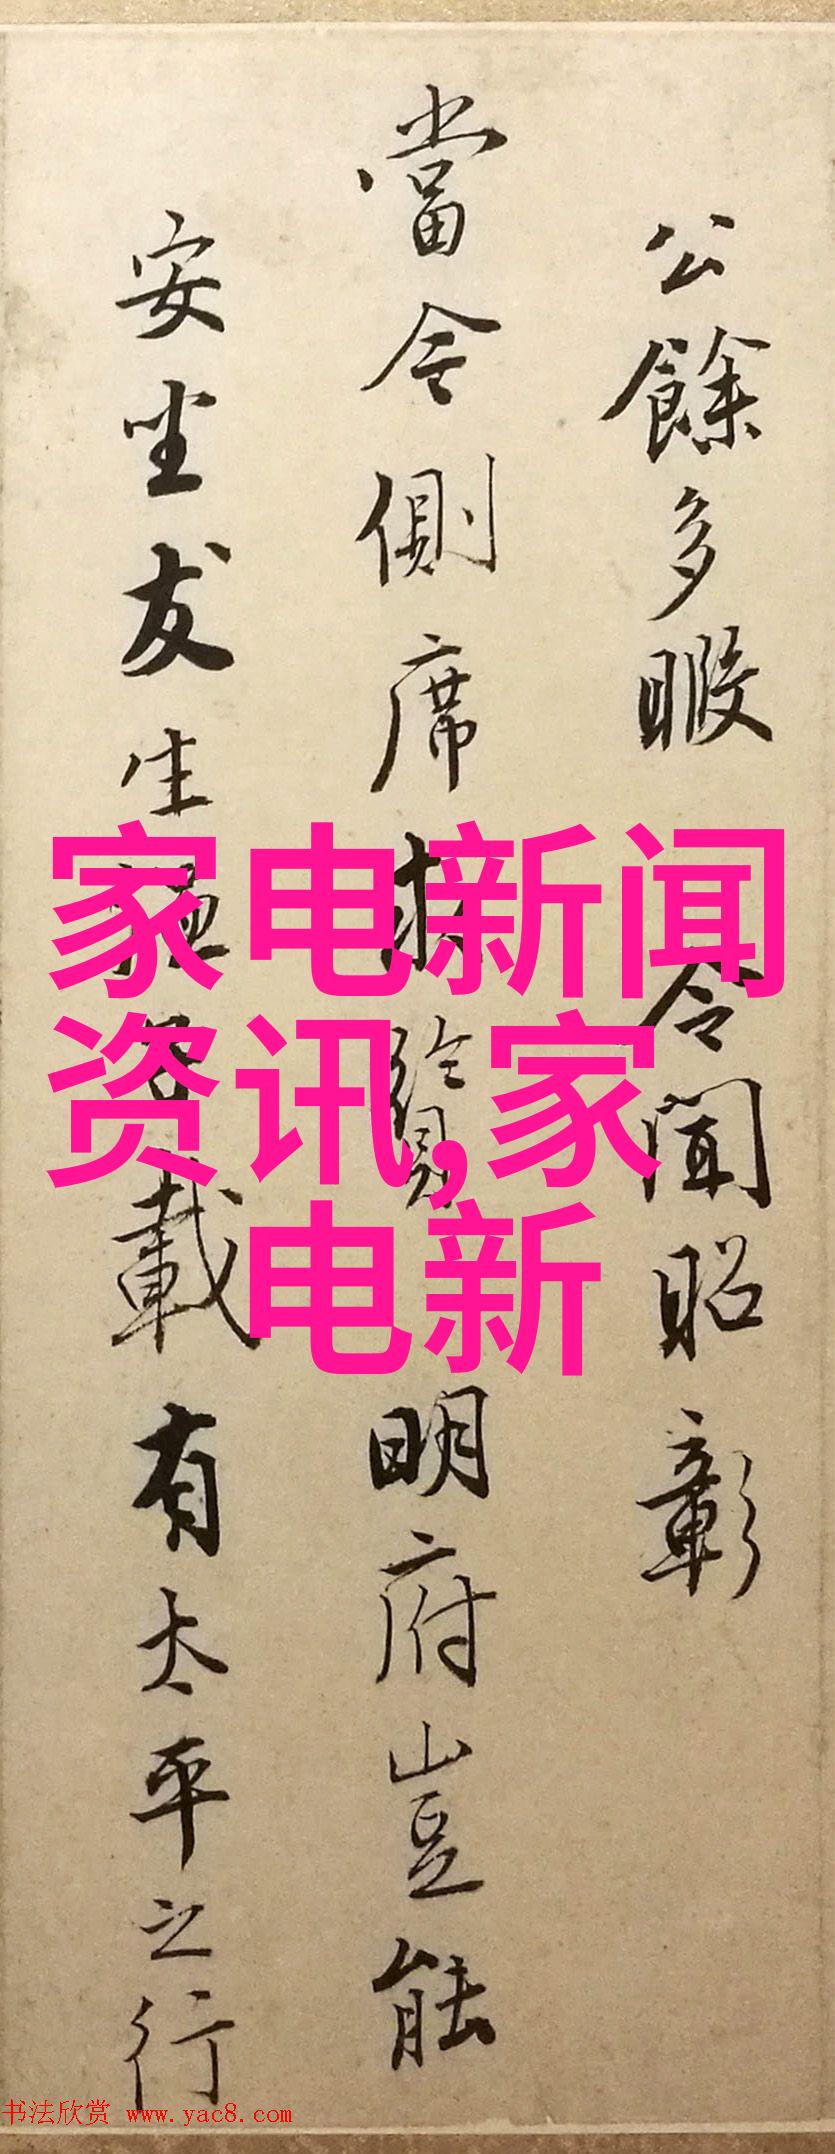 公餘多暇 令聞昭彰
當今側席求賢明府豈能
安坐友生載有太平之行
家电新闻
资讯,家
电新
书法欣赏 www.yac8.com